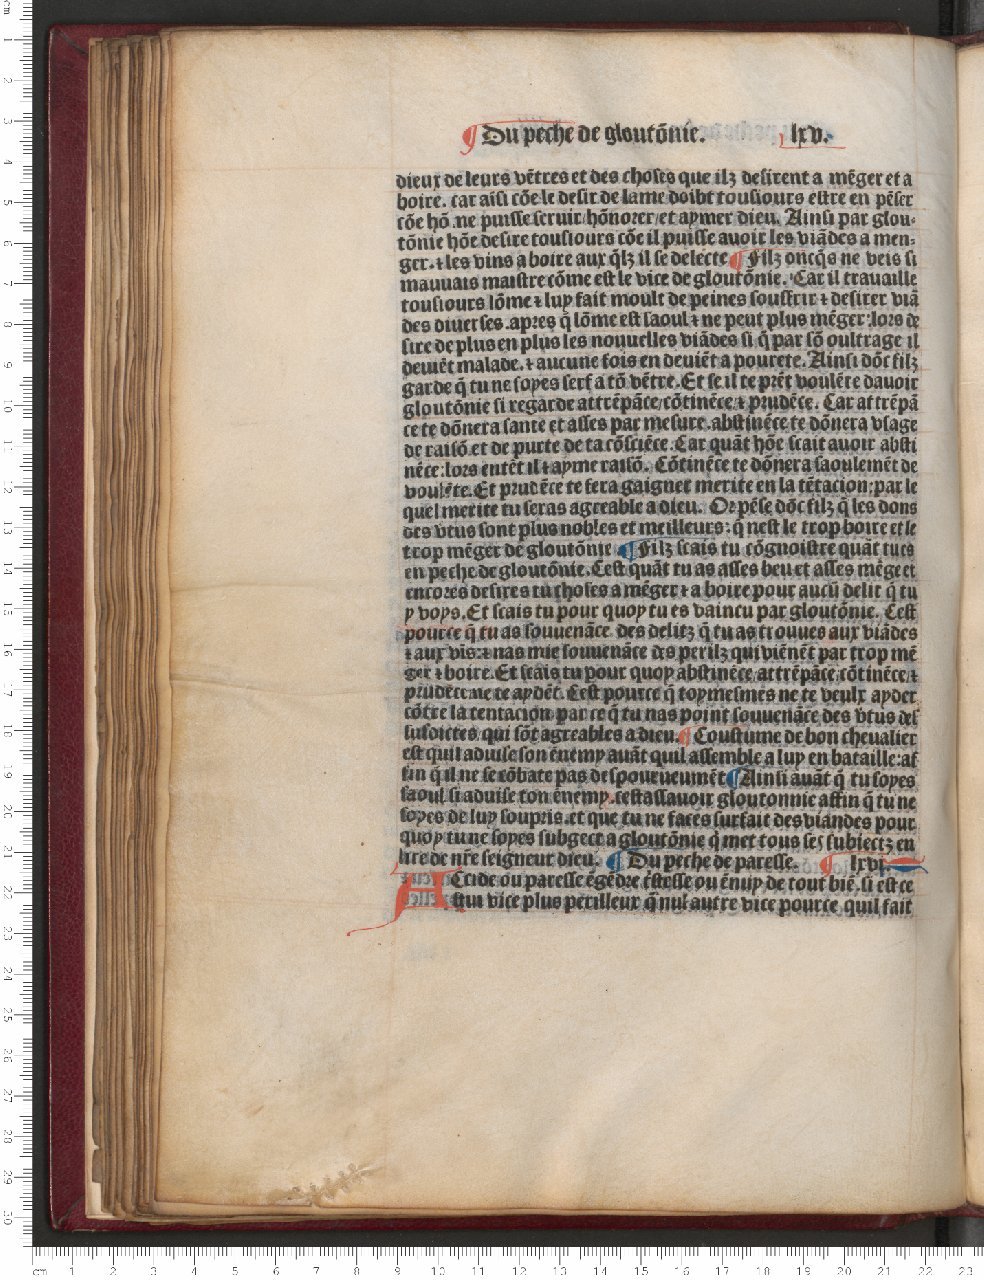 ¶ Du peche de gloutõnie. lxv.
dieux de leurs vẽtres et des choses que ilz desirent a mẽger et a
boire. car aĩsi cõe le desir de lame doibt tousiours estre en pẽser
cõe hõ .ne puisse seruir/hõnorer/et aymer dieu. Ainsi par glou-
tõnie hõe desire tousiours cõe il puisse auoir les viãdes a men-
ger.⁊ les vins a boire aux q̃lz il se delecte ¶ Filz oncq̃s ne veis si
mauuais maistre cõme est le vice de gloutõnie. Car il trauaille
tousiours lõme ⁊ luy fait moult de peines souffrir ⁊ desirer viã
des diuerses .apres q̃ lõme est saoul ⁊ ne peut plus mẽger :lors de
sire de plus en plus les nouuelles viãdes si q̃ par sõ oultrage il
deuiẽt malade. ⁊ aucune fois en deuiẽt a pourete. Ainsi dõc filz
garde q̃ tu ne soyes serf a tõ vẽtre. Et se il te prẽt voulẽte dauoir
gloutõnie si regarde attrẽpãce/cõtinẽce/⁊ prudẽce. Car attrẽpã
ce te dõnera sante et asses par mesure .abstinẽce te dõnera vsage
de raisõ et de purte de ta cõsciẽce. Car quãt hõe scait auoir absti
nẽce :lors entẽt il ⁊ ayme raisõ. Cõtinẽce te dõnera saoulemẽt de
voulẽte. Et prudẽce te fera gaigner merite en la tẽtacion: par le
quel merite tu seras agreable a dieu. Or pẽse dõc filz q̃ les dons
des vtus sont plus nobles et meilleurs: q̃ nest le trop boire et le
trop mẽger de gloutõnie ¶ Filz scais tu cõgnoistre quãt tu es
en peche de gloutõnie. Cest quãt tu as asses beu et asses mẽge et
encores desires tu choses a mẽger ⁊ a boire pour aucũ delit q̃ tu
y voys. Et scais tu pour quoy tu es vaincu par gloutõnie. Cest
pource q̃ tu as souuenãce des delitz q̃ tu as trouues aux viãdes
⁊ aux vis: ⁊ nas mie souuenãce des perilz qui viẽnẽt par trop mẽ
ger ⁊ boire. Et scais tu pour quoy abstinẽce/attrẽpãce/cõtinẽce/⁊
prudẽce ne te aydẽt. Cest pource q̃ toymesmes ne te veulx ayder
cõtre la tentacion par ce q̃ tu nas point souuenãce des vtus des
susdictes/ qui sõt agreables a dieu. ¶ Coustume de bon cheualier
est quil aduise son ẽnemy auãt quil assemble a luy en bataille: af
fin q̃ il ne se cõbate pas despourueumẽt ¶ Ainsi auãt q̃ tu soyes
saoul si aduise ton ẽnemy .cestassauoir gloutonnie affin q̃ tu ne
soyes de luy soupris .et que tu ne faces surfait des viandes pour
quoy tu ne soyes subgect a gloutõnie q̃ met tous ses subiectz en
lire de nr̃e seigneur dieu. ¶ Du peche de paresse. ¶ lxvi.
ACcide ou paresse ẽgẽdre t̃stesse ou ẽnuy de tout biẽ. si est ce
stui vice plus perilleux q̃ nul autre vice pource quil fait